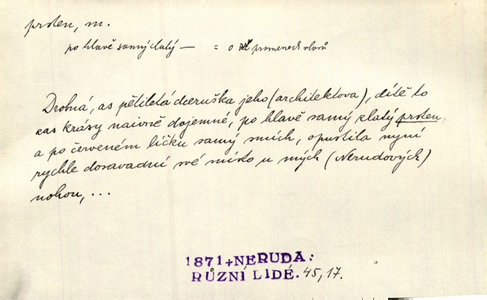 prsten, m.
po hlavě samý zlatý — = o pramenech vlasů
Drobná, as pětiletá dceruška jeho (architektova), dítě to
zas krásy naivně dojemné, po hlavě samý zlatý prsten
a po červeném líčku samý smích, opustila nyní
rychle dosavadní své místo u mých (Nerudových)
nohou, ...
1871+NERUDA:
RŮZNÍ LIDÉ. 45, 17.